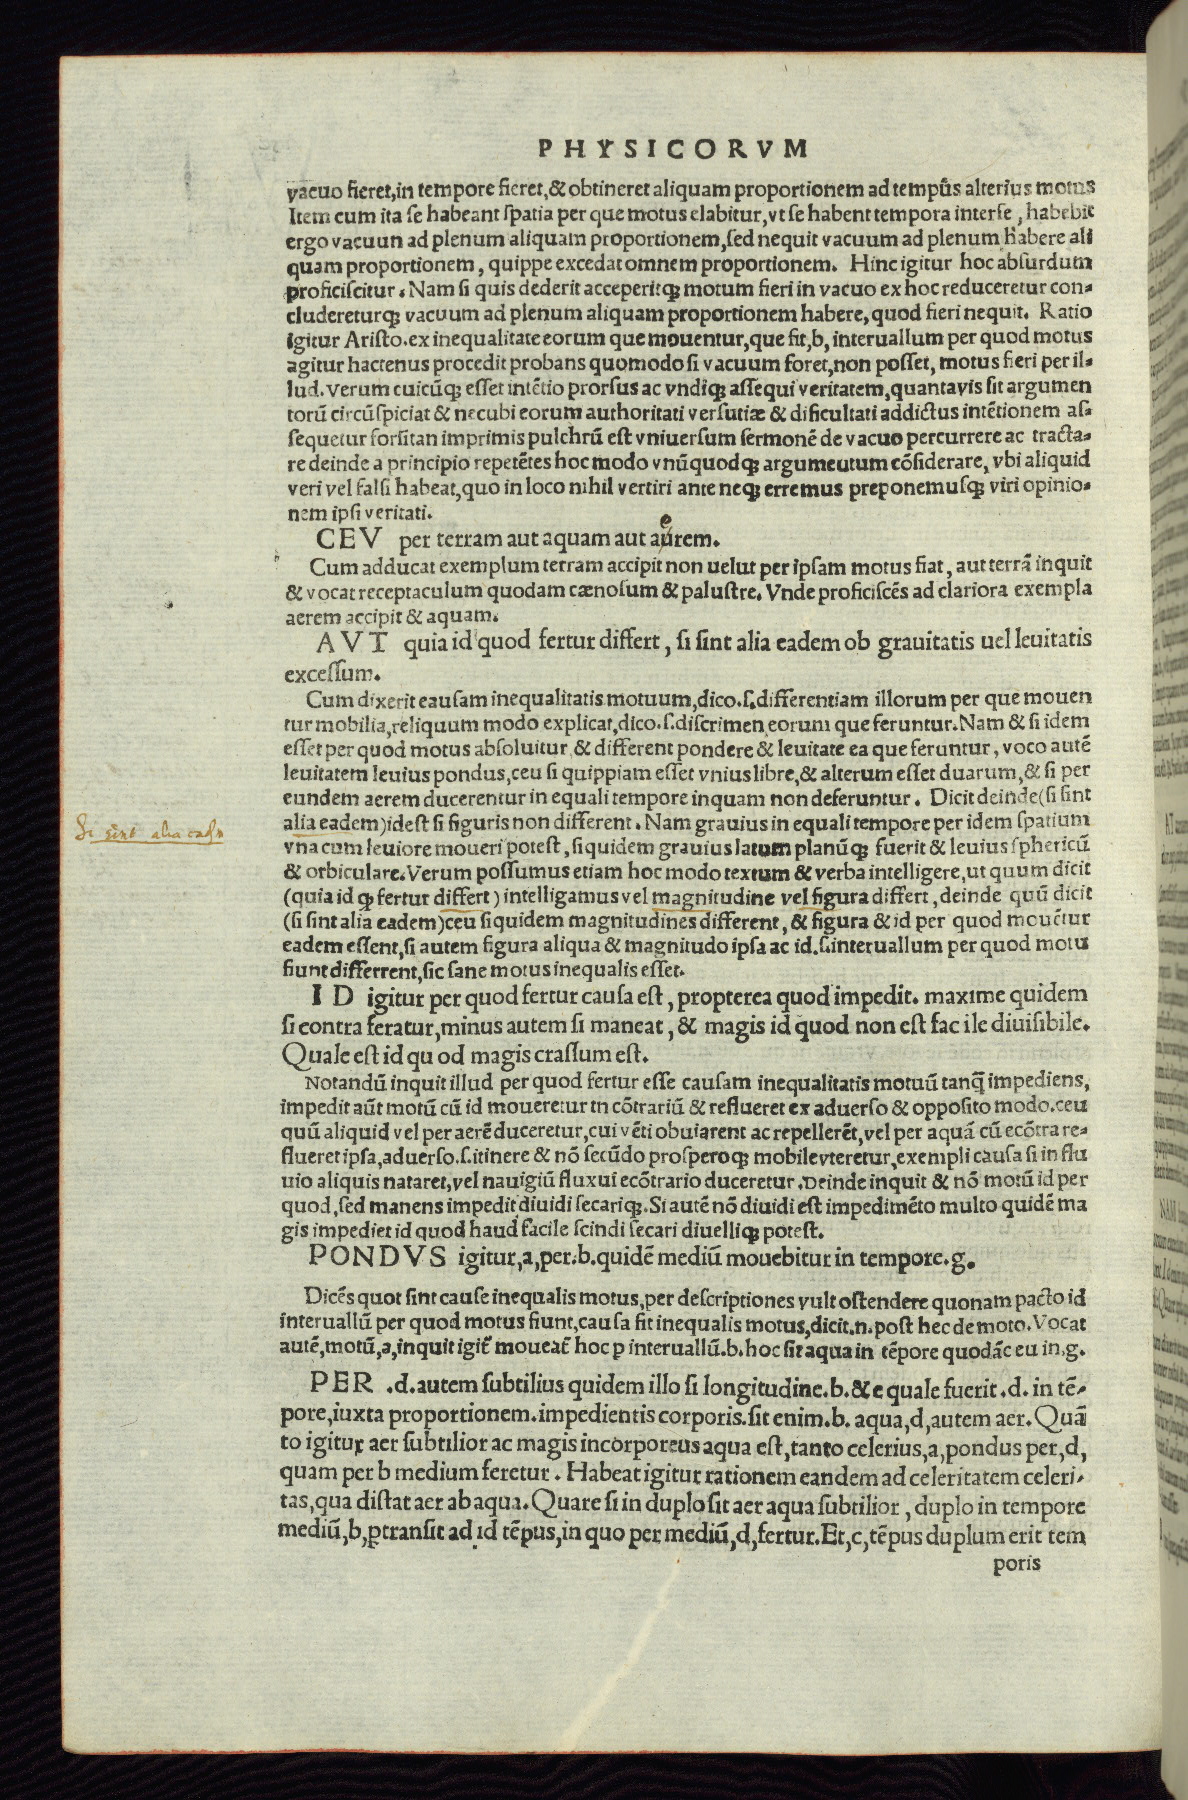 PHYSICORVM
vacuo fieret, in tempore fieret, & obtineret aliquam proportionem ad tempus alterius motus
Item cum ita se habeant spatia per que motus elabitur, vt se habent tempora interse, habebit
ergo vacuun ad plenum aliquam proportionem, sed nequit vacuum ad plenum habere ali
quam proportionem, quippe excedat omnem proportionem. Hinc igitur hoc absurdum
proficiscitur. Nam si quis dederit acceperitqȝ motum fieri in vacuo ex hoc reduceretur con-
cludereturqȝ vacuum ad plenum aliquam proportionem habere, quod fieri nequit. Ratio
igitur Aristo. ex inequalitate eorum que mouentur, que fit, b, interuallum per quod motus
agitur hactenus procedit probans quomodo si vacuum foret, non posset, motus fieri per il-
lud. Verum cuicūqȝ esset intētio prorsus ac vndiqȝ assequi veritatem, quantavis sit argumen
torū circūspiciat & necubi eorum authoritati versutiæ & dificultati addictus intētionem as-
sequetur forsitan imprimis pulchrū est vniuersum sermonē de vacuo percurrere ac tracta-
re deinde a principio repetētes hoc modo vnūquodqȝ argumeutum cōsiderare, vbi aliquid
veri vel falsi habeat, quo in loco nihil vertiri ante neqȝ erremus preponemusqȝ viri opinio-
nem ipsi veritati.
CEV per terram aut aquam aut aurem.
e
Cum adducat exemplum terram accipit non uelut per ipsam motus fiat, aut terrā inquit
& vocat receptaculum quodam cænosum & palustre. Vnde proficiscēs ad clariora exempla
aerem accipit & aquam.
AVT quia id quod fertur differt, si sint alia eadem ob grauitatis uel leuitatis
excessum.
Cum dixerit eausam inequalitatis motuum, dico. s. differentiam illorum per que mouen
tur mobilia, reliquum modo explicat, dico. s. discrimen eorum que feruntur. Nam & si idem
esset per quod motus absoluitur & different pondere & leuitate ea que feruntur, voco autē
leuitatem leuius pondus, ceu si quippiam esset vnius libre, & alterum esset duarum, & si per
eundem aerem ducerentur in equali tempore inquam non deferuntur. Dicit deinde (si sint
alia eadem) idest si figuris non different. Nam grauius in equali tempore per idem spatium
vna cum leuiore moueri potest, siquidem grauius latum planūqȝ fuerit & leuius sphericū
& orbiculare. Verum possumus etiam hoc modo textum & verba intelligere, ut quum dicit
(quia id qȝ fertur differt) intelligamus vel magnitudine vel figura differt, deinde quū dicit
(si sint alia eadem) ceu siquidem magnitudines different, & figura & id per quod mouētur
eadem essent, si autem figura aliqua & magnitudo ipsa ac id. s. interuallum per quod motu
fiunt differrent, sic sane motus inequalis esset.
Si sint alia
ID igitur per quod fertur causa est, propterea quod impedit. maxime quidem
si contra feratur, minus autem si maneat, & magis id quod non est fac ile diuisibile.
Quale est id qu od magis crassum est.
Notandū inquit illud per quod fertur esse causam inequalitatis motuū tanq̄ impediens,
impedit aūt motū cū id moueretur tn cōtrariū & reflueret ex aduerso & opposito modo. ceu
quū aliquid vel per aerē duceretur, cui vēti obuiarent ac repellerēt, vel per aquā cū ecōtra re-
flueret ipsa, aduerso. s. itinere & nō secūdo prosperoqȝ mobile vteretur, exempli causa si in flu
uio aliquis nataret, vel nauigiū fluxui ecōtrario duceretur. Deinde inquit & nō motū id per
quod, sed manens impedit diuidi secariqȝ. Si autē nō diuidi est impedimēto multo quidē ma
gis impediet id quod haud facile scindi secari diuelliqȝ potest.
PONDVS igitur, a, per. b. quidē mediū mouebitur in tempore. g.
Dicēs quot sint cause inequalis motus, per descriptiones vult ostendere quonam pacto id
interuallū per quod motus fiunt, causa fit inequalis motus, dicit. n. post hec de moto. Vocat
autē, motū, a, inquit igit̄ moueat̄ hoc p interuallū. b. hoc sit aqua in tēpore quodāc eu in. g.
PER .d. autem subtilius quidem illo si longitudine. b. & e quale fuerit. d. in tē-
pore, iuxta proportionem. impedientis corporis. sit enim. b. aqua, d, autem aer. Quā
to igitur aer subtilior ac magis incorporeus aqua est, tanto celerius, a, pondus per, d,
quam per b medium feretur. Habeat igitur rationem eandem ad celeritatem celeri-
tas, qua distat aer ab aqua. Quare si in duplo sit aer aqua subtilior, duplo in tempore
mediū, b, ꝑtransit ad id tēpus, in quo per mediū, d, fertur. Et, c, tēpus duplum erit tem
poris